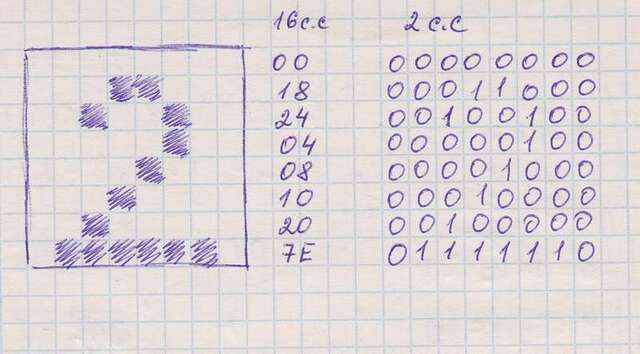 16 с.с 2 с.с
00 00000000
18 00011000
24 00100100
04 00000100
08 00001000
10 00010000
20 00100000
7E 01111110